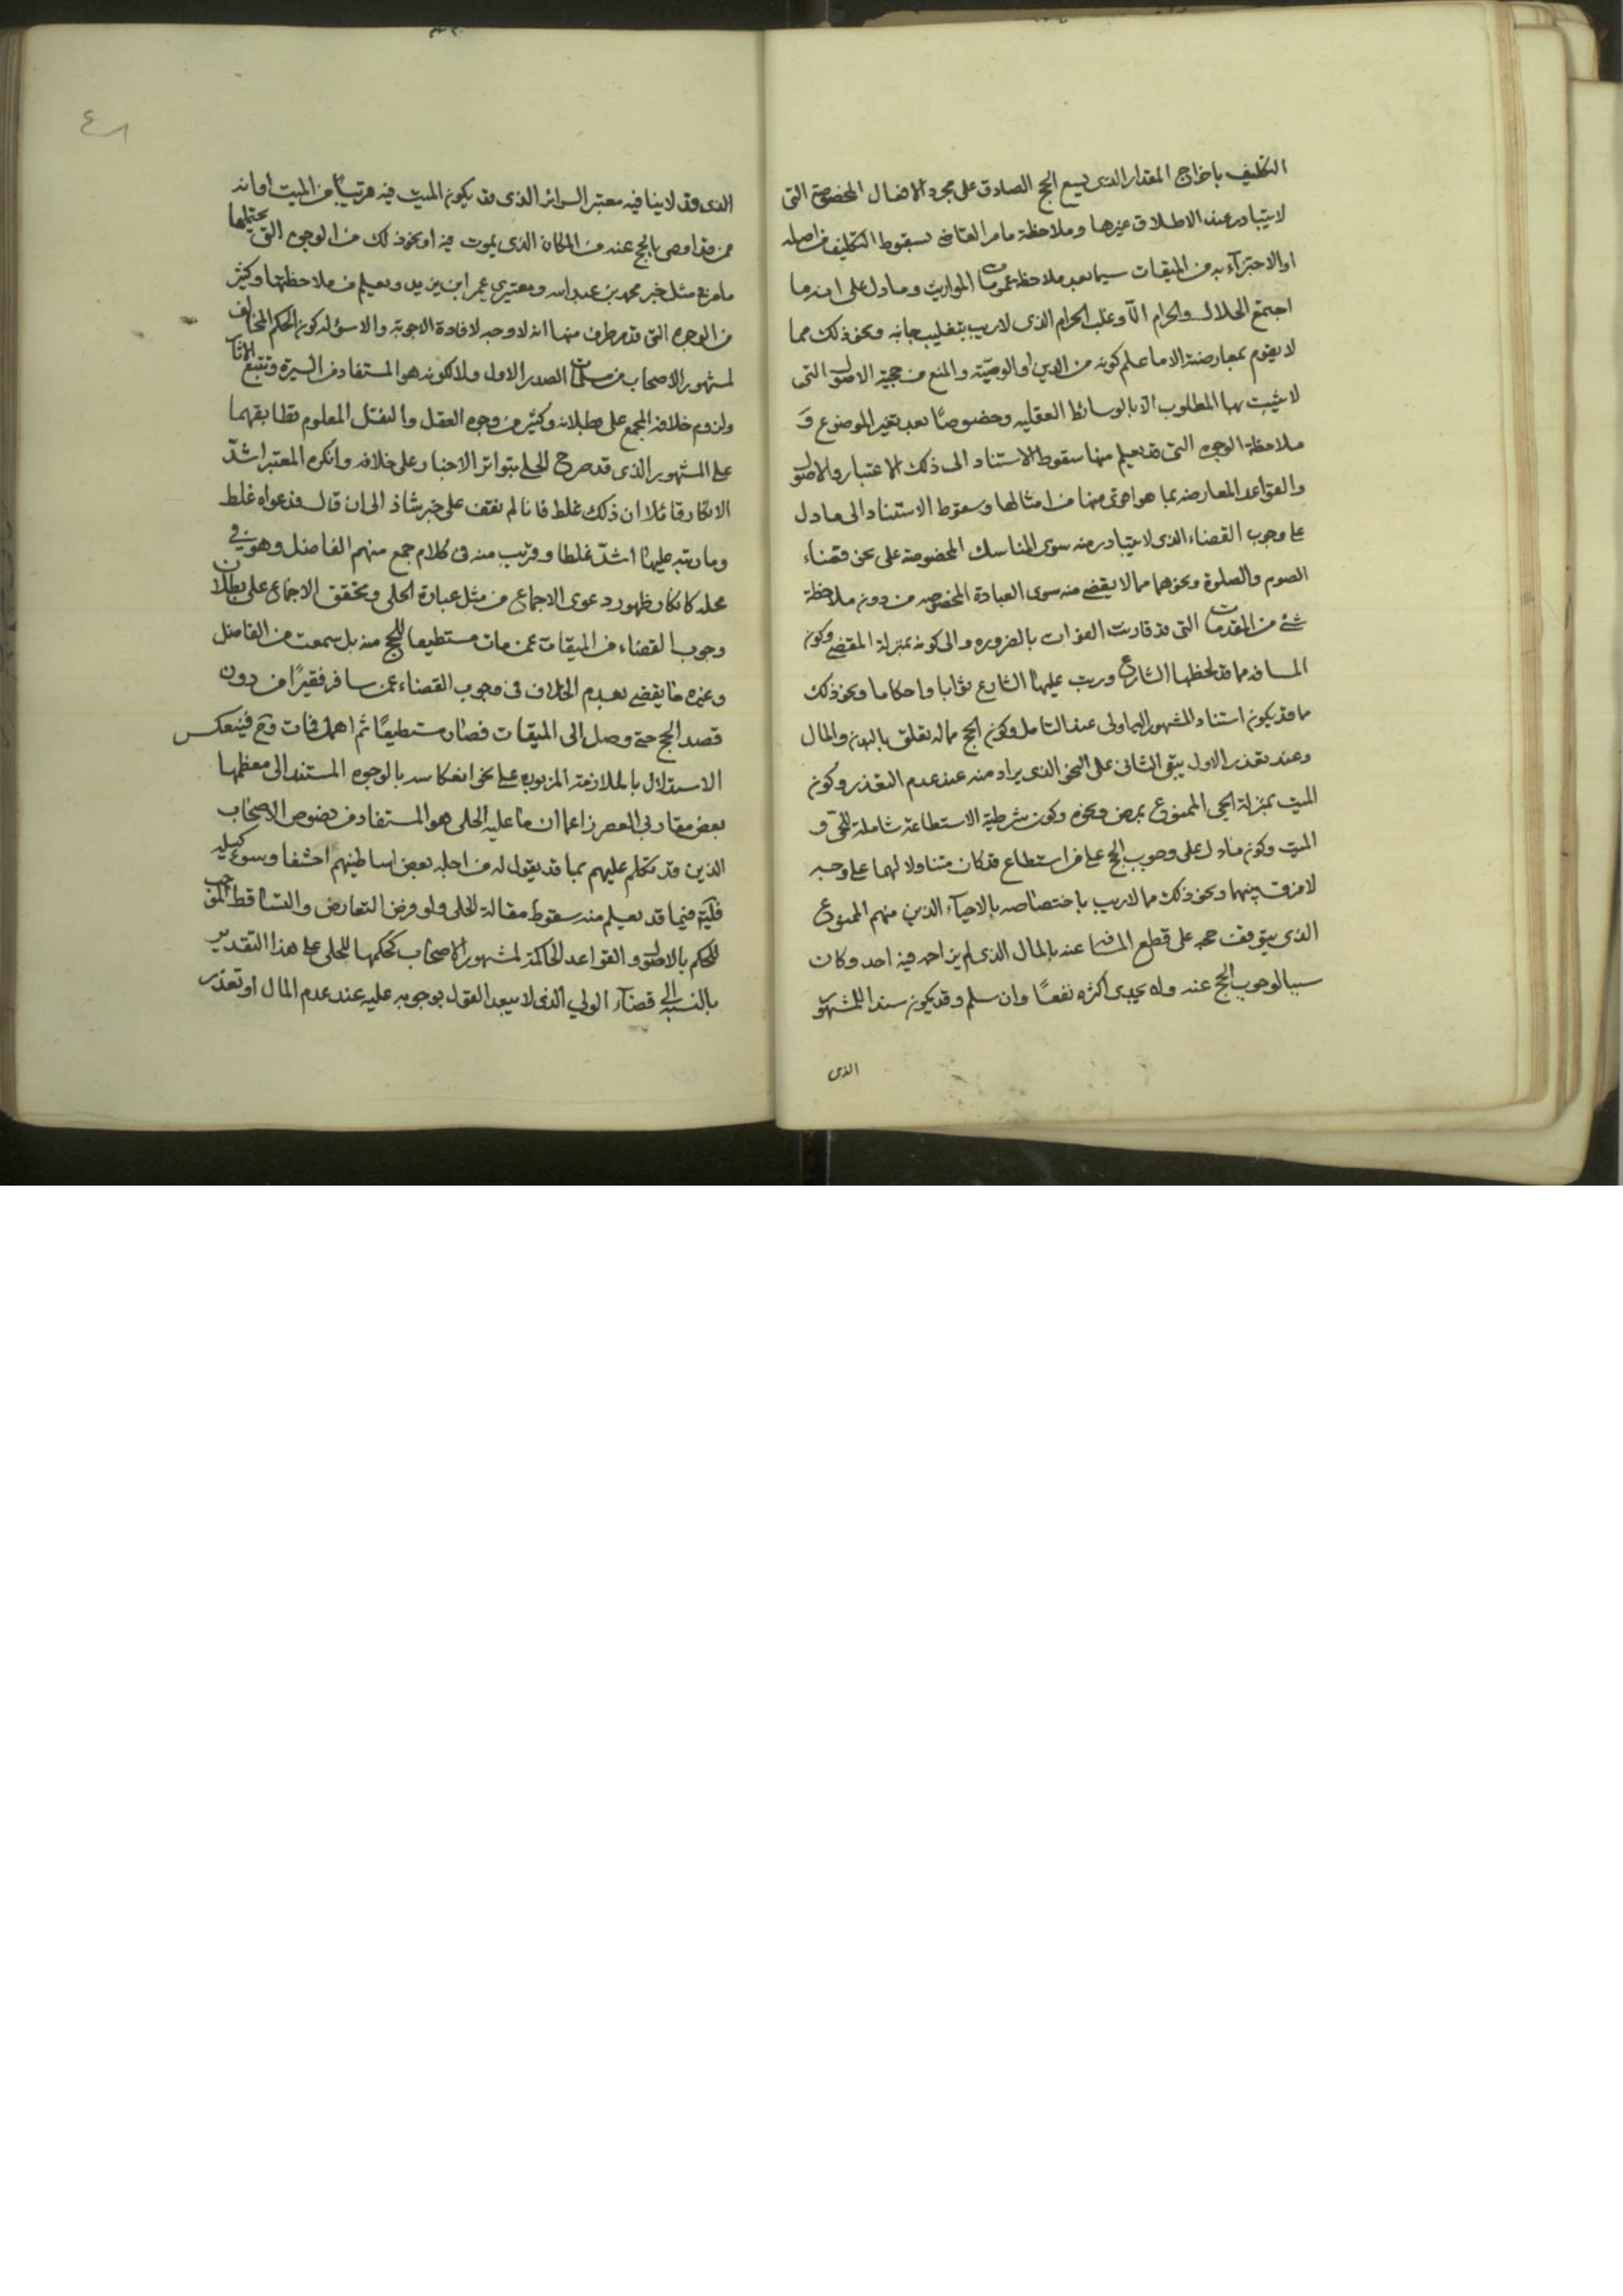 التكليف باخراج المقدار الذى يسع الحج الصادق على مجرد الافعال المخصوصة التى
لا يتبادر عند الاطلاق غيرها وملاحظة ما مر القاضى بسقوط التكليف من اصله
او الاجتزآء به من الميقات سيما بعد ملاحظة عمومات المواريث وما دل على انه ما
اجتمع الحلال والحرام الّا وغلب الحرام الذى لا ريب بتغليب جانبه ونحو ذلك مما
لا يقوم بمعارضته الا ما علم كونه من الدين او الوصيّة والمنع من حجية الاصول التى
لا يثبت بها المطلوب الا بالوسائط العقليه وخصوصًا بعد تغير الموضوع و
ملاحظة الوجوه التى قد يعلم منها سقوط الاستناد الى ذلك الاعتبار والاصول
والقواعد المعارضه بما هو اقوى منها من امثالها وسقوط الاستناد الى ما دل
على وجوب القضاء الذى لا يتبادر منه سوى المناسك المخصوصة على نحو قضاء
الصوم والصلوة ونحوهما مما لا يقضى منه سوى العبادة المخصوصه من دون ملاحظة
شئ من المقدمات التى قد فاتت بالضروره والى كونه بمنزلة المقضى وكون
المسافه مما قد لحظها الشارع ورتب عليها الشارع ثوابا واحكاما ونحو ذلك
ما قد يكون استناد المشهور اليها اولى عند التامل وكون الحج مما له تعلق بالبدن والمال
وعند تعذر الاول يبقى الثانى على النحو الذى يراد منه عند عدم التعذر وكون
الميت بمنزلة الحى الممنوع بمرض ونحوه وكون شرطية الاستطاعة شاملة للحىّ و
الميت وكون ما دل على وجوب الحج على من استطاع قد كان متناولا لهما على وجه
لا فرق بينهما ونحو ذلك مما لا ريب باختصاصه بالاحيآء الذين منهم الممنوع
الذى يتوقف حجه على قطع المسافة عنه بالمال الذى لم يزاحمه فيه احد وكان
سببا لوجوب الحج عنه ولا يجدى اكثره نفعًا وان سلم وقد يكون سندا للمشهور
الذى
الذى قد لا ينافيه معتبر السرائر الذى قد يكون الميت فيه قريبًا من الميت او انه
ممن قد اوصى بالحج عنه من المكان الذى يموت فيه او نحو ذلك من الوجوه التى يحتملها
ما مر مع مثل خبر محمد بن عبد الله ومعتبرى عمر ابن يزيد ويعلم من ملاحظتها وكثير
من الوجوه التى قد مر طرف منها انه لا وجه لافادة الاجوبة والاسؤله كون الحكم المخالف
لمشهور الاصحاب من مسلمات الصدر الاول ولا لكونه هو المستفاد من السيرة وتتبع الاثار
ولزوم خلافه المجمع على بطلانه وكثير من وجوه العقل والنقل المعلوم تطابقهما
على المشهور الذى قد صرح الحلى بتواتر الاخبار على خلافه وانكره المعتبر اشدّ
الانكار قائلا ان ذلك غلط فانا لم نقف على خبر شاذ الى ان قال فدعواه غلط
وما رتبه عليها اشدّ غلطا وقريب منه فى كلام جمع منهم الفاضل وهو فى
محله كانكار ظهور دعوى الاجماع من مثل عبارة الحلى وتحقق الاجماع على بطلان
وجوب القضاء من الميقات عمن مات مستطيعا للحج منه بل سمعت من الفاضل
وغيره ما يقضى بعدم الخلاف فى وجوب القضاء عمن سافر فقيرًا من دون
قصد الحج حتى وصل الى الميقات فصار مستطيعًا ثم اهمل فمات وح فينعكس
الاستدلال بالملازمة المزبوره على نحو انعكاسه بالوجوه المستند الى معظمها
بعض مقاربى العصر زاعما ان ما عليه الحلى هو المستفاد من نصوص الاصحاب
الذين قد تكلم عليهم بما قد يقول له من اجله بعض اساطينهم احشفا وسوء كيله
فليته فيما قد يعلم منه سقوط مقالة الحلى ولو فرض التعارض والتساقط الموجب
للحكم بالاصول والقواعد الحاكمة لمشهور الاصحاب كحكمها للحلى على هذا التقدير
بالنسبة الى قضآء الولى الذى لا يبعد القول بوجوبه عليه عند عدم المال او تعذر